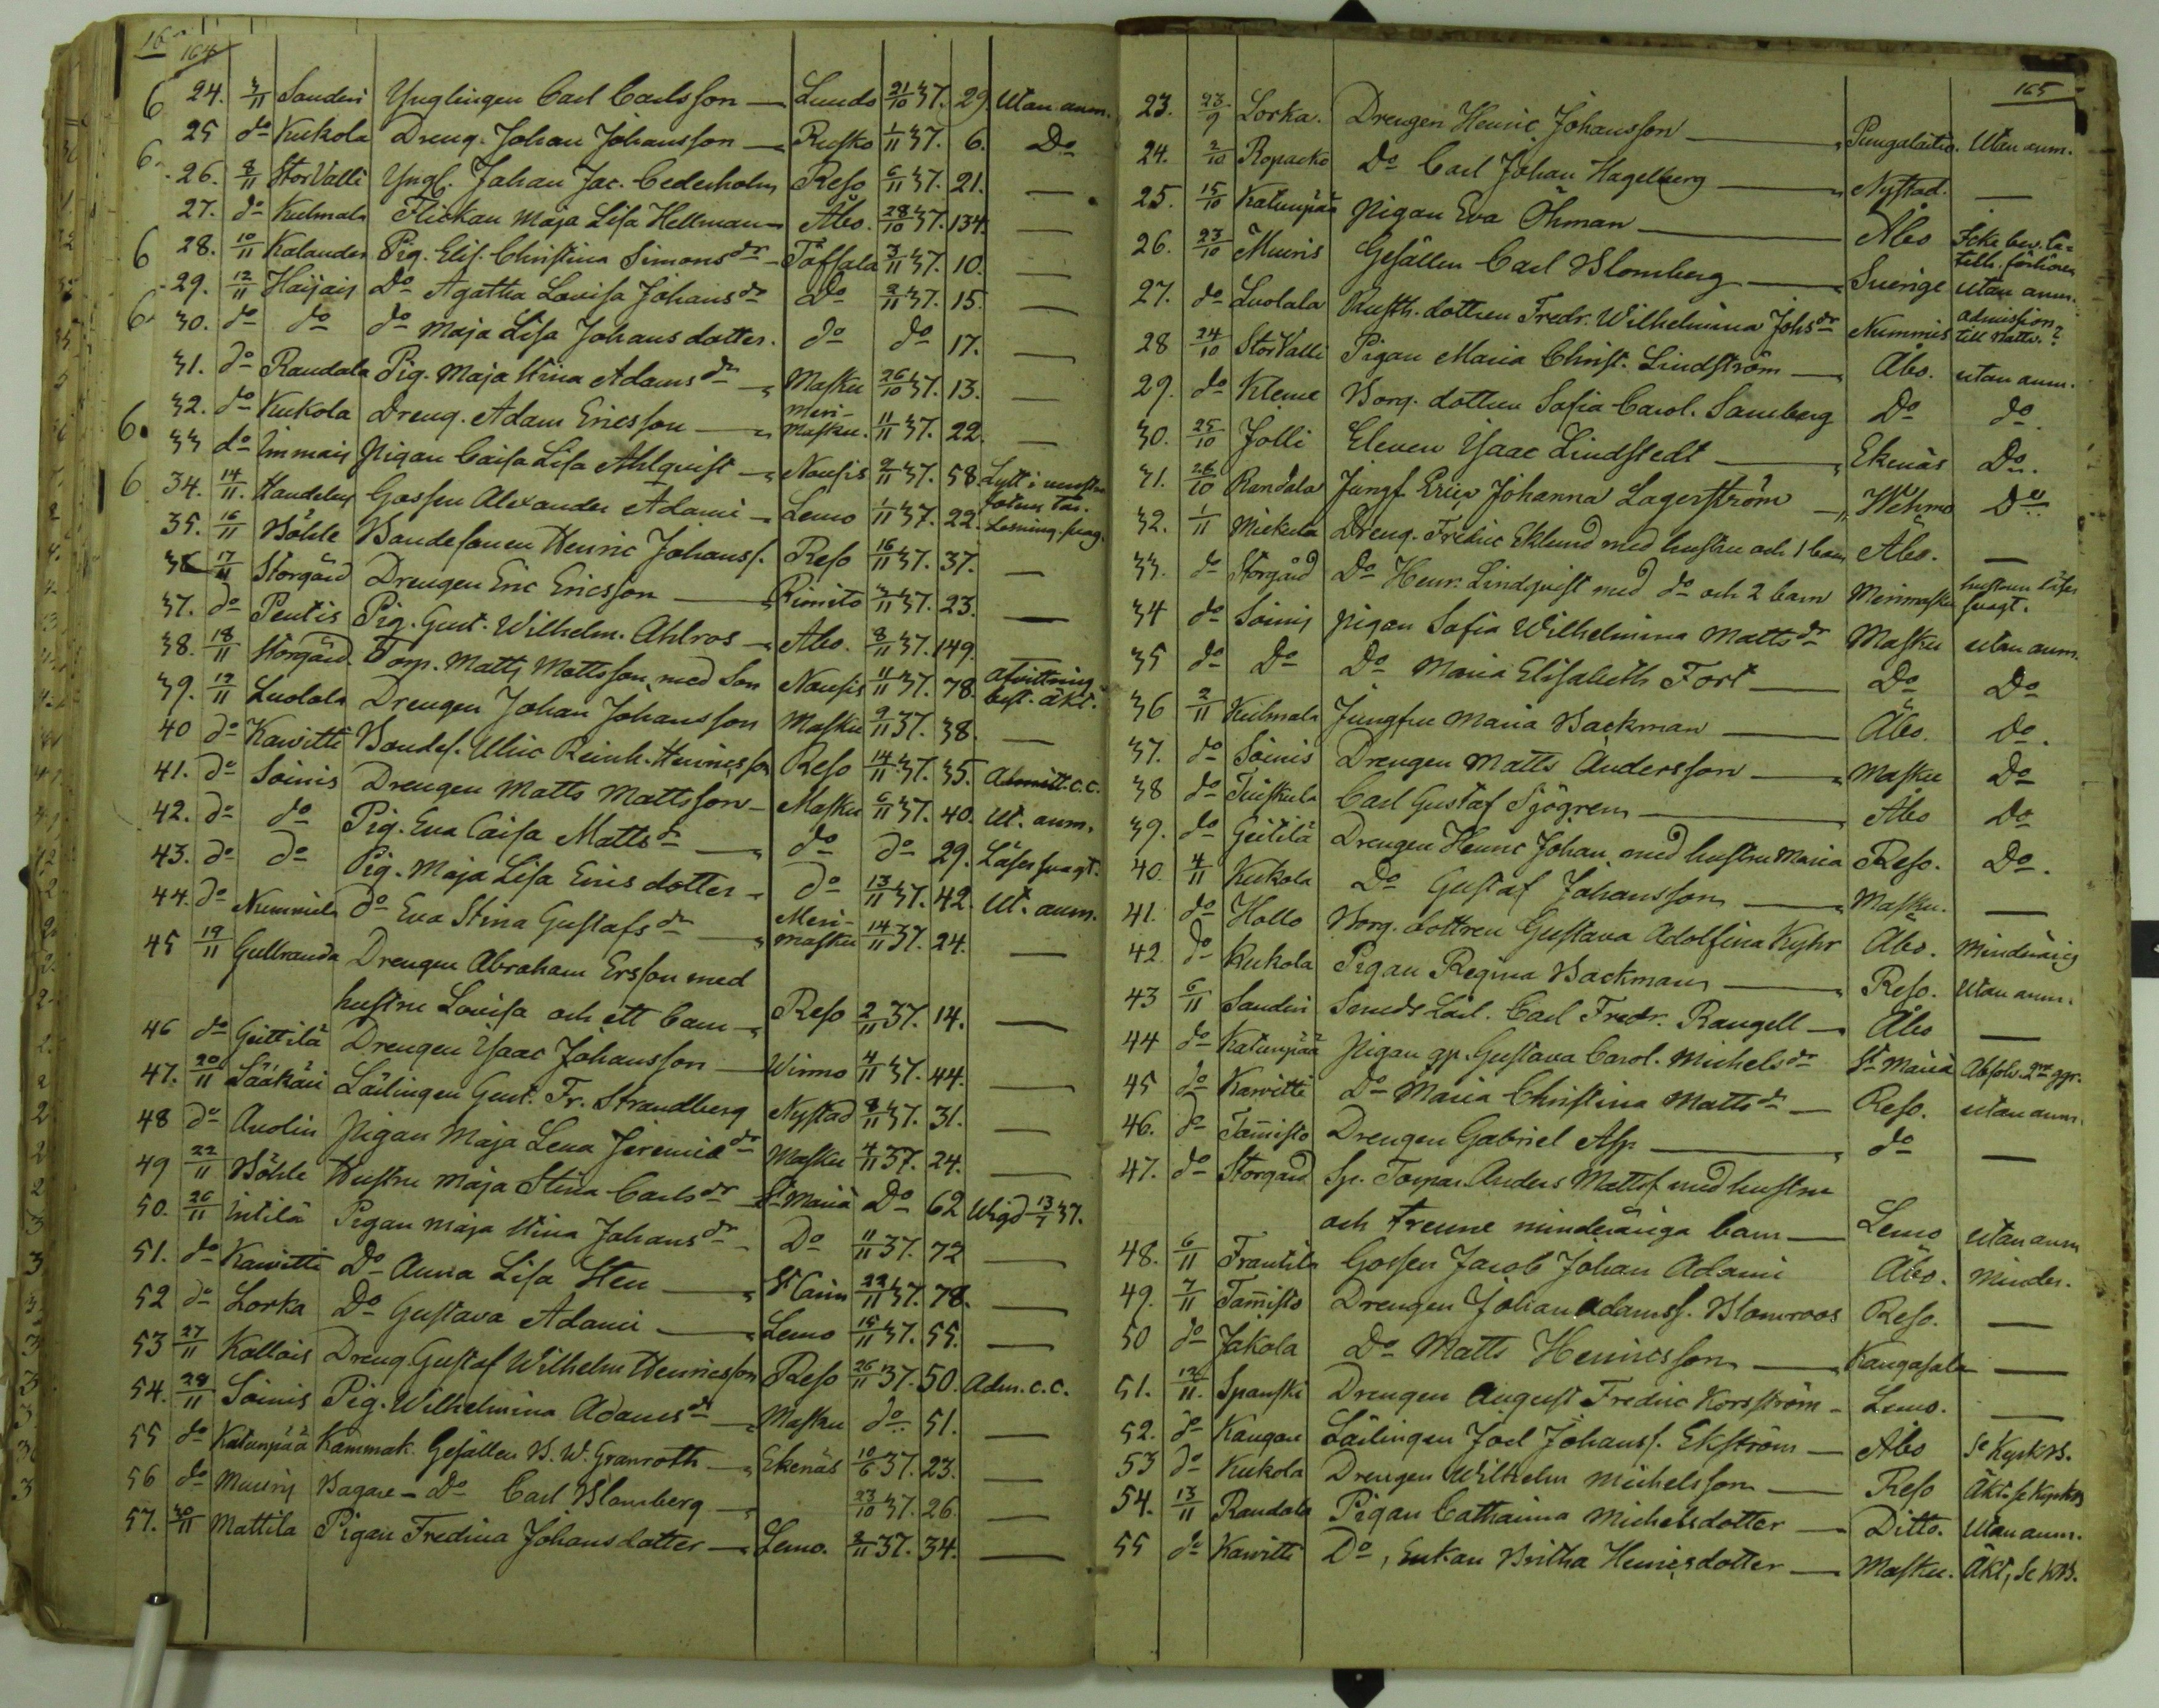 164
24. 3/11 Sanderi Ynglingen Carl Carlsson — Lundo 21/10 37. 29 Utan anm.
25 do Kukola Dreng. Johan Johansson — Rusko 1/11 37. 6. Do
26. 8/11 StorValli Yngl. Johan Jac. Cederholm Reso 6/11 37. 21. —
27. do Kulmala Flickan Maja Lisa Hellman — Åbo. 28/10 37. 134. —
28. 10/11 Kalander Pig. Elis. Christina Simonsdr — Töffsala 3/11 37. 10. —
29. 12/11 Haijais Do Agatha Lovisa Johansdr Do 2/11 37. 15. —
30. do do do Maja Lisa Johansdotter. do do 17. —
31. do Randala Pig. Maja Stina Adamsdr — Masku 26/10 37. 13. —
32. do Kukola Dreng. Adam Ericsson — Meri-Masku. 11/11 37. 22. —
33 do Immais Pigan Caisa Lisa Ahlqvist — Nousis 9/11 37. 58.
34. 14/11. Gossen Alexander Adami — Lemo 1/11 37. 22.
35. 16/11 Böhle Bondesonen Henric Johanss. Reso 16/11 37. 37. —
36 17/11 Storgård Drengen Eric Ericsson — Rimito 3/11 37. 23. —
37. do Pentis Pig. Gust. Wilhelm. Ahlros — Åbo. 8/11 37. 149. —
38. 18/11 Storgård. Torp. Matts Mattsson med son Nousis 11/11 37. 78. Afvittring best. äkt.
39. 19/11 Luolala Drengen Johan Johansson Masku 9/11 37. 38. —
40 do Kawitti Bondes. Ulric Reinh. Henricsson Reso 14/11 37. 35. Admitt. c.c.
41. do Soinis Drengen Matts Mattsson — Masku 6/11 37. 40. Ut. anm.
42. do do Pig. Eva Caisa Mattsdr — do do 29. Läser svagt.
43. do do Pig. Maja Lisa Ericsdotter — do 13/11 37. 42. Ut. anm.
44. do Nummila do Eva Stina Gustafsdr — Meri-masku 14/11 37. 24. —
45 19/11 Gullranda Drengen Abraham Ersson med
hustru Lovisa och ett barn — Reso 2/11 37. 14. —
46 do Geittilä Drengen Isaac Johansson — Wirmo 4/11 37. 44. —
47. 20/11 Sääkäri Lärlingen Gust. Fr. Strandberg Nystad 8/11 37. 31. —
48 do Auolin Pigan Maja Lena Jeremiædr Masku 4/11 37. 24. —
49 22/11 Böhle Hustru Maja Stina Carlsdr St Maria Do 62 Wigd 13/7 37.
50. 26/11 Intilä Pigan Maja Stina Johansdr — Do 11/11 37. 72 —
51. do Kawitti Do Anna Lisa Sten — St Carin 22/11 37. 78. —
52 do Lorka Do Gustava Adami — Lemo 15/11 37. 55. —
53 27/11 Kallois Dreng. Gustaf Wilhelm Henricsson Reso 26/11 37. 50. Adm. c.c.
54. 28/11 Soinis Pig. Wilhelmina Adamsdr — Masku do 51. —
55 do Katunpää Kammak. Gesällen B. W. Granroth — Ekenäs 10/6 37. 23. —
56 do Muuris Bagare — Do Carl Blomberg — 23/10 37. 26. —
57. 30/11 Mattila Pigan Fredina Johansdotter — Lemo. 2/11 37. 34. —
165
23. 23/9 Lorka. Drengen Henric Johansson — Pungalaitio. Utan anm.
24. 2/10 Ropacko Do Carl Johan Hagelberg — Nystad. —
25. 15/10 Katunpää Pigan Eva Öhman — Åbo
26. 23/10 Muuris Gesällen Carl Blomberg — Sverige Utan anm.
27. do Luolala Rusth. dottren Fredr. Wilhelmina Johsdr Nummis Admission till Nattv.?
28 24/10 StorValli Pigan Maria Christ. Lindström — Åbo. utan anm.
29. do Kleme Borg. dottren Sofia Carol. Samberg Do do.
30. 25/10 Jolli Eleven Isaac Lindstedt — Ekenäs Do.
31. 26/10 Randala Jungf. Erica Johanna Lagerström — Wehmo Do
32. 1/11 Mickula Dreng. Fredric Eklund med hustru och 1 barn Åbo. —
33. do Storgård Do Henr. Lindqvist med do och 2 barn Merimasku hustrun läser svagt.
34 do Soinis Pigan Sofia Wilhelmina Mattsdr Masku utan anm.
35 do Do Do Maria Elisabeth Fort — Do Do
36 2/11 Kulmala Jungfru Maria Backman — Åbo. do.
37. do Soinis Drengen Matts Andersson — Masku Do
38 do Tuiskula Carl Gustaf Sjögren — Åbo Do
39. do Geitilä Drengen Henric Johan. med hustru Maria Reso. Do.
40. 4/11 Kukola Do Gustaf Johansson — Masku. —
41. do Hollo Borg. dottren Gustava Adolfina Kyhr Åbo. Minderårig
42. do Kukola Pigan Regina Backman — Reso. Utan anm.
43 6/11 Sanderi Smeds Lärl. Carl Fredr. Rangell — Åbo —
44 do Katunpää Pigan gp. Gustava Carol. Michelsdr St Maria Absolv. 2ne ggr.
45 do Kawitti Do Maria Christina Mattsdr — Reso. utan anm.
46. do Tamisto Drengen Gabriel Asp — do —
47. do Storgård Sp. Torpar. Anders Mattss. med hustru
och trenne minderåriga barn — Lemo utan anm
48. 6/11 Frantila Gossen Jacob Johan Adami Åbo. Minder.
49. 7/11 Tamisto Drengen Johan Adamss. Blomroos Reso. —
50 do Jakola Do Matts Henricsson — Kangasala —
51. 12/11. Spanski Drengen August Fredric Korsström — Lemo. —
52. do Kangare Lärlingen Joel Johanss. Ekström — Åbo Se KyrkBs.
53 do Kukola Drengen Wilhelm Michelsson — Reso Äkt. se KyrkBs
54. 13/11 Randala Pigan Catharina Michelsdotter — Ditto. Utan anm.
55 do Kawitti Do, Enkan Britha Henricsdotter — Masku. Äkt, Se KBs.